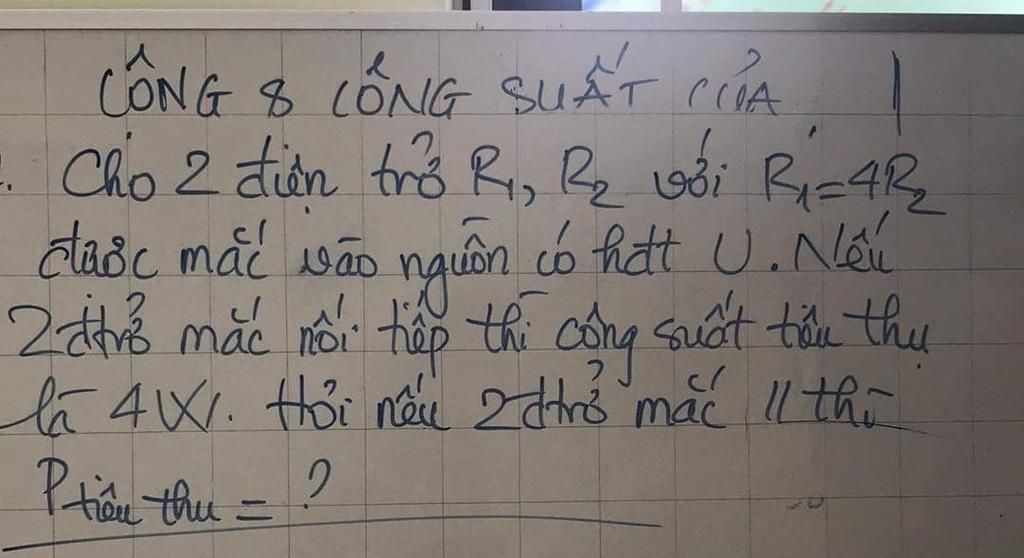 CÔNG & CÔNG SUẤT CỦA
Cho 2 điện trở R₁, R₂ với R₁=4R₂
được mắc vào nguồn có hđt U. Nếu
2 đtrở mắc nối tiếp thì công suất tiêu thụ
là 4W. Hỏi nếu 2 đtrở mắc // thì
P tiêu thụ = ?